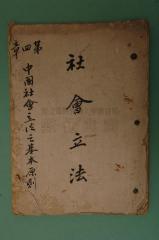 社會立法
第四章
中國社會立法之基本原則